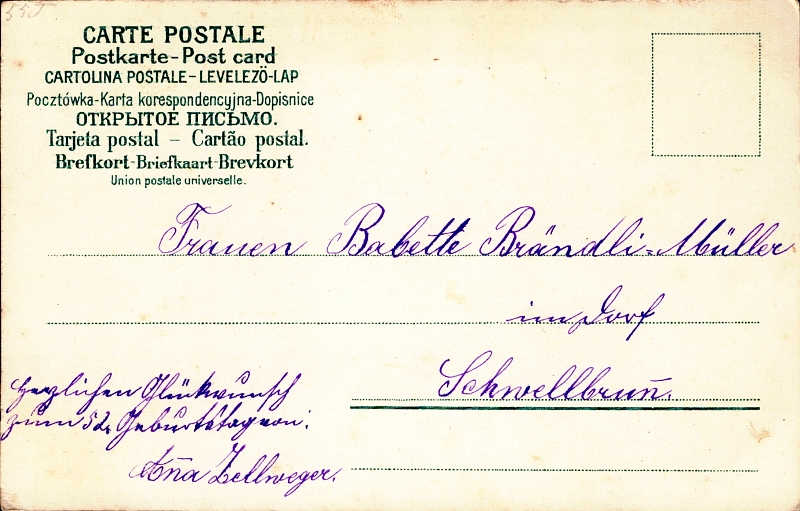 559
CARTE POSTALE
Postkarte-Post card
CARTOLINA POSTALE-LEVELEZÖ-LAP
Pocztówka-Karta korespondencyjna-Dopisnice
ОТКРЫТОЕ ПИСЬМО.
Tarjeta postal — Cartão postal.
Brefkort-Briefkaart-Brevkort
Union postale universelle.
Frauen Babette Brändli-Müller
im Dorf
Schwellbrun̄.
Herzlichen Glückwunsch
zum 52. Geburtstag von:
An̄a Zellweger.